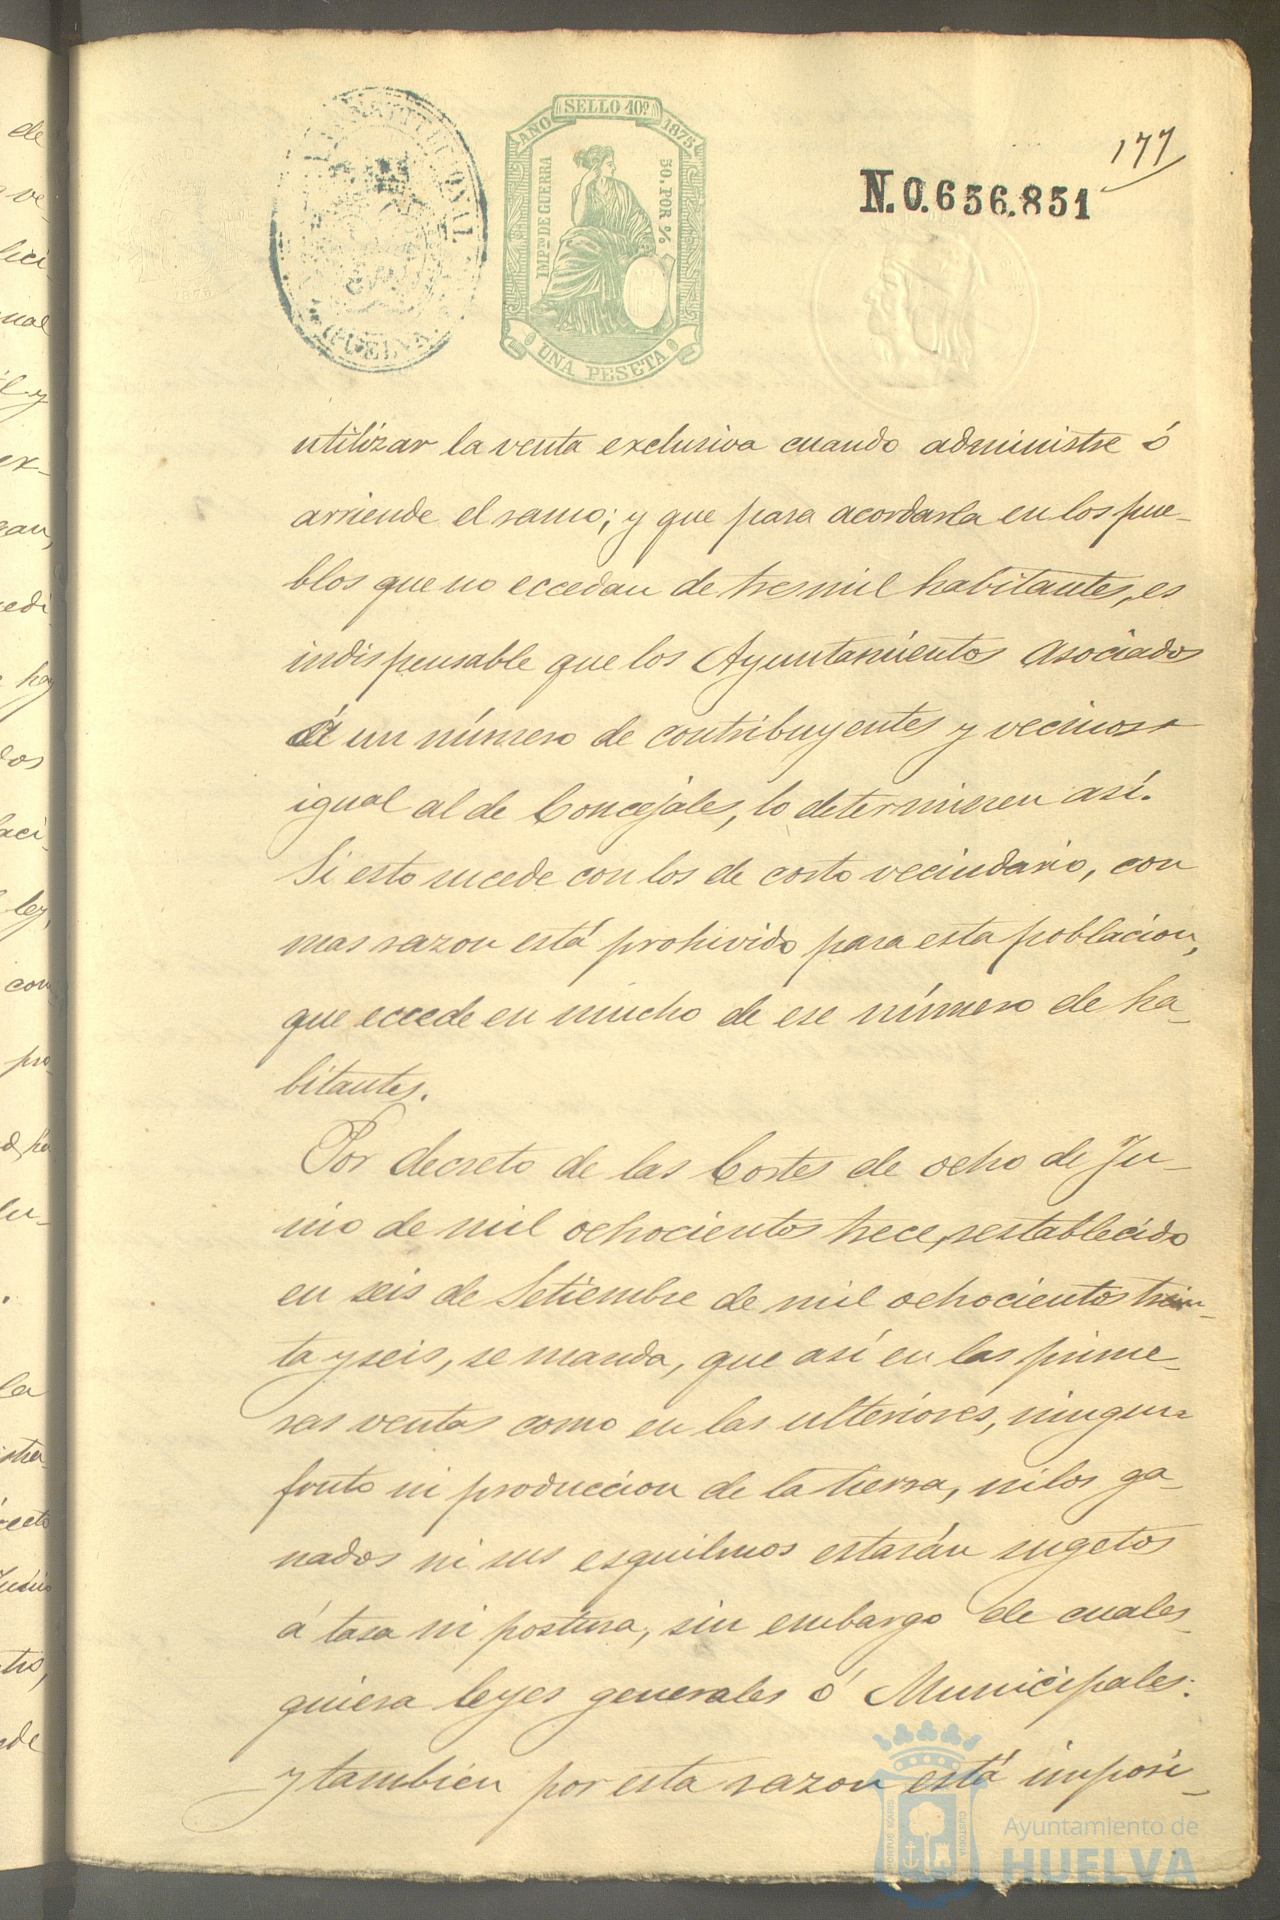 177
N.0.656.851
AÑO SELLO 10º 1875
IMPTO DE GUERRA
50. POR %
UNA PESETA
CONSTITUCIONAL
HUELVA
utilizar la venta exclusiva cuando administre ó
arriende el ramo; y que para acordarla en los pue-
blos que no eccedan de tres mil habitantes, es
indispensable que los Ayuntamientos asociados
á un número de contribuyentes y vecinos
igual al de Concejales, lo determinen así.
Si esto sucede con los de corto vecindario, con
mas razon está prohivido para esta poblacion,
que eccede en mucho de ese número de ha-
bitantes.
Por decreto de las Cortes de ocho de Ju-
nio de mil ochocientos trece, restablecido
en seis de Setiembre de mil ochocientos trein-
ta y seis, se manda, que así en las prime-
ras ventas como en las ulteriores, ningun
fruto ni produccion de la tierra, ni los ga-
nados ni sus esquilmos estarán sugetos
á tasa ni postura, sin embargo de cuales-
quiera leyes generales ó Municipales:
y tambien por esta razon está imposi-
Ayuntamiento de
HUELVA